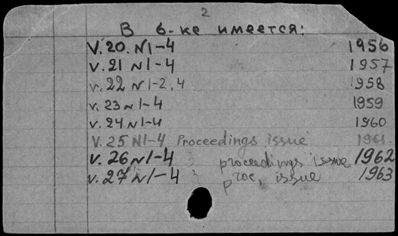 2
В б-ке имеется:
V. 20. N1-4 1956
V. 21 N1-4 1957
v. 22 N1-2, 4 1958
v. 23 N1-4 1959
v. 24 N1-4 1960
V. 25 N1-4 Proceedings issue 1961
V. 26 N1-4 " proceedings issue 1962
v. 27 N1-4 " proc. issue 1963